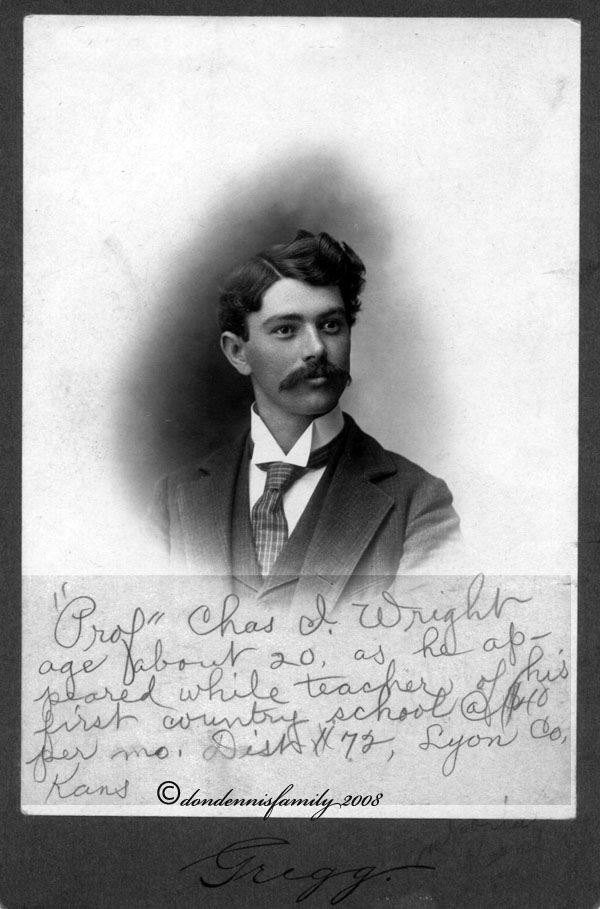 "Prof" Chas I. Wright
age about 20, as he ap-
peared while teacher of his
first country school @ $40
per mo. Dist # 72, Lyon Co,
Kans
©dondennisfamily 2008
Gregg.